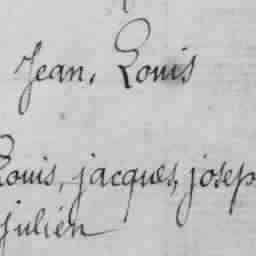 Jean, Louis
Louis, jacques, josep
julien